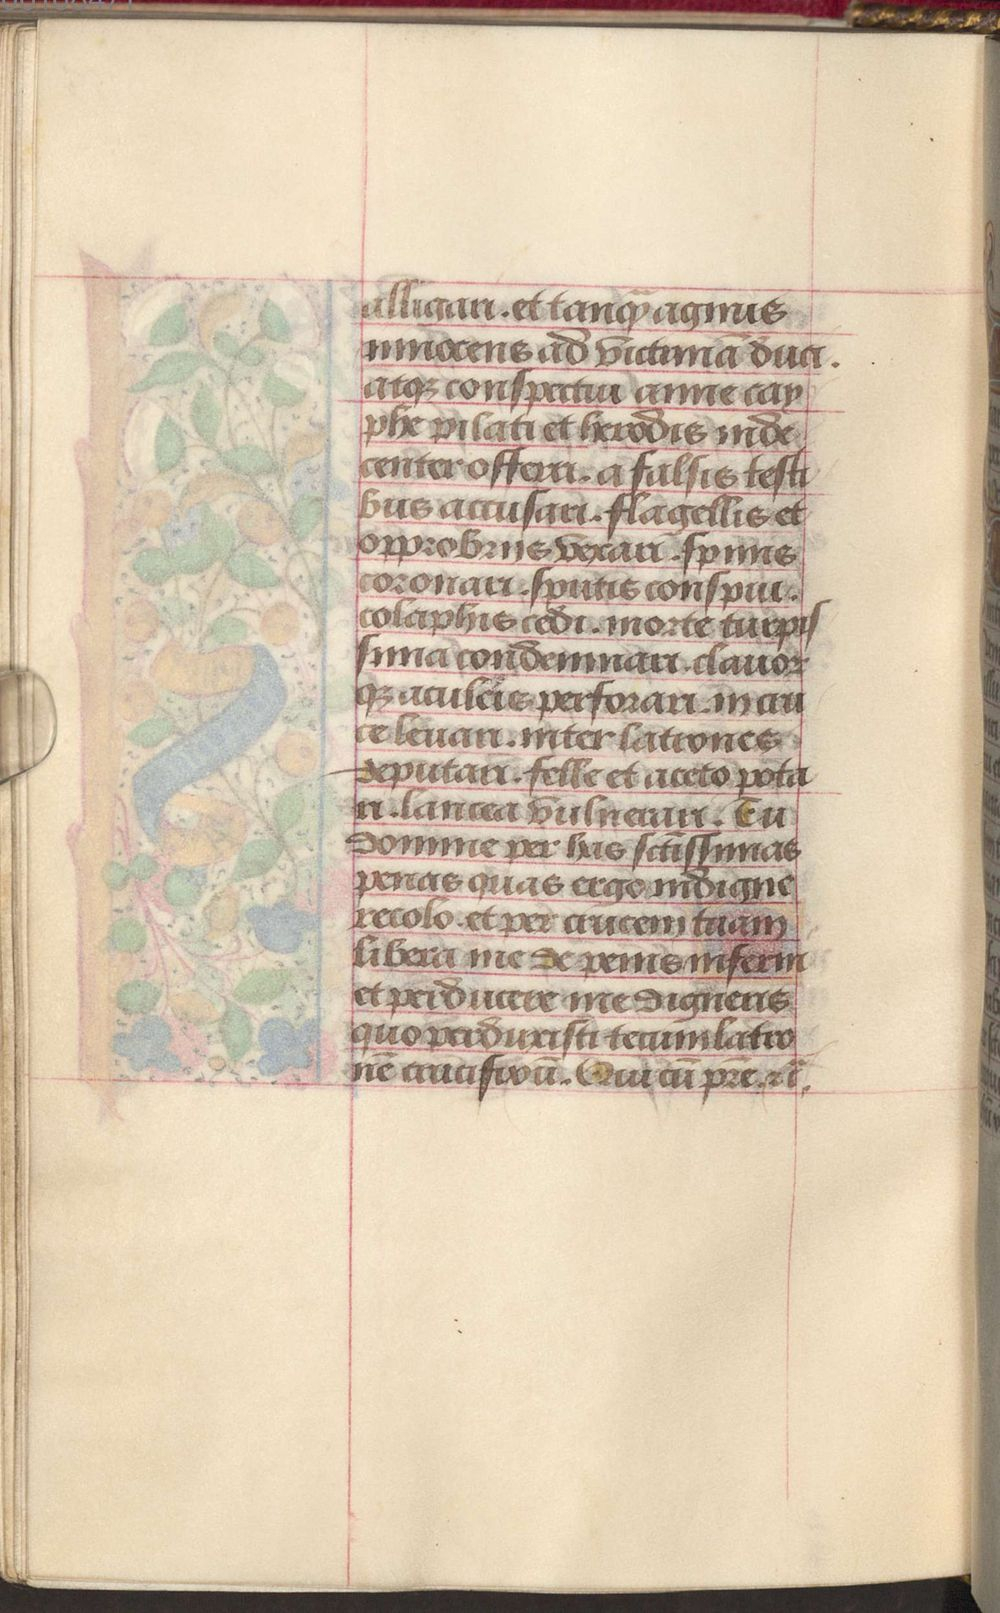 alligari. et tanq̄ agnus
innocens ad victimā duci.
atqꝫ conspectui anne cay
phe pilati et herodis inde
center offerri. a falsis testi
bus accusari. flagellis et
opprobriis vexari. spinis
coronari. sputis conspui.
colaphis cedi. morte turpis
sima condemnari. clavor
qꝫ aculeis perforari. in cru
ce levari. inter latrones
deputari. felle et aceto pota
ri. lancea vulnerari. Tu
domine per has sc̄tissimas
penas quas ergo indigne
recolo. et per crucem tuam
libera me de penis inferni
et perducere me digneris
quo perduxisti tecum latro
nē crucifixū. Qui cū pr̄e. ⁊ c̄.